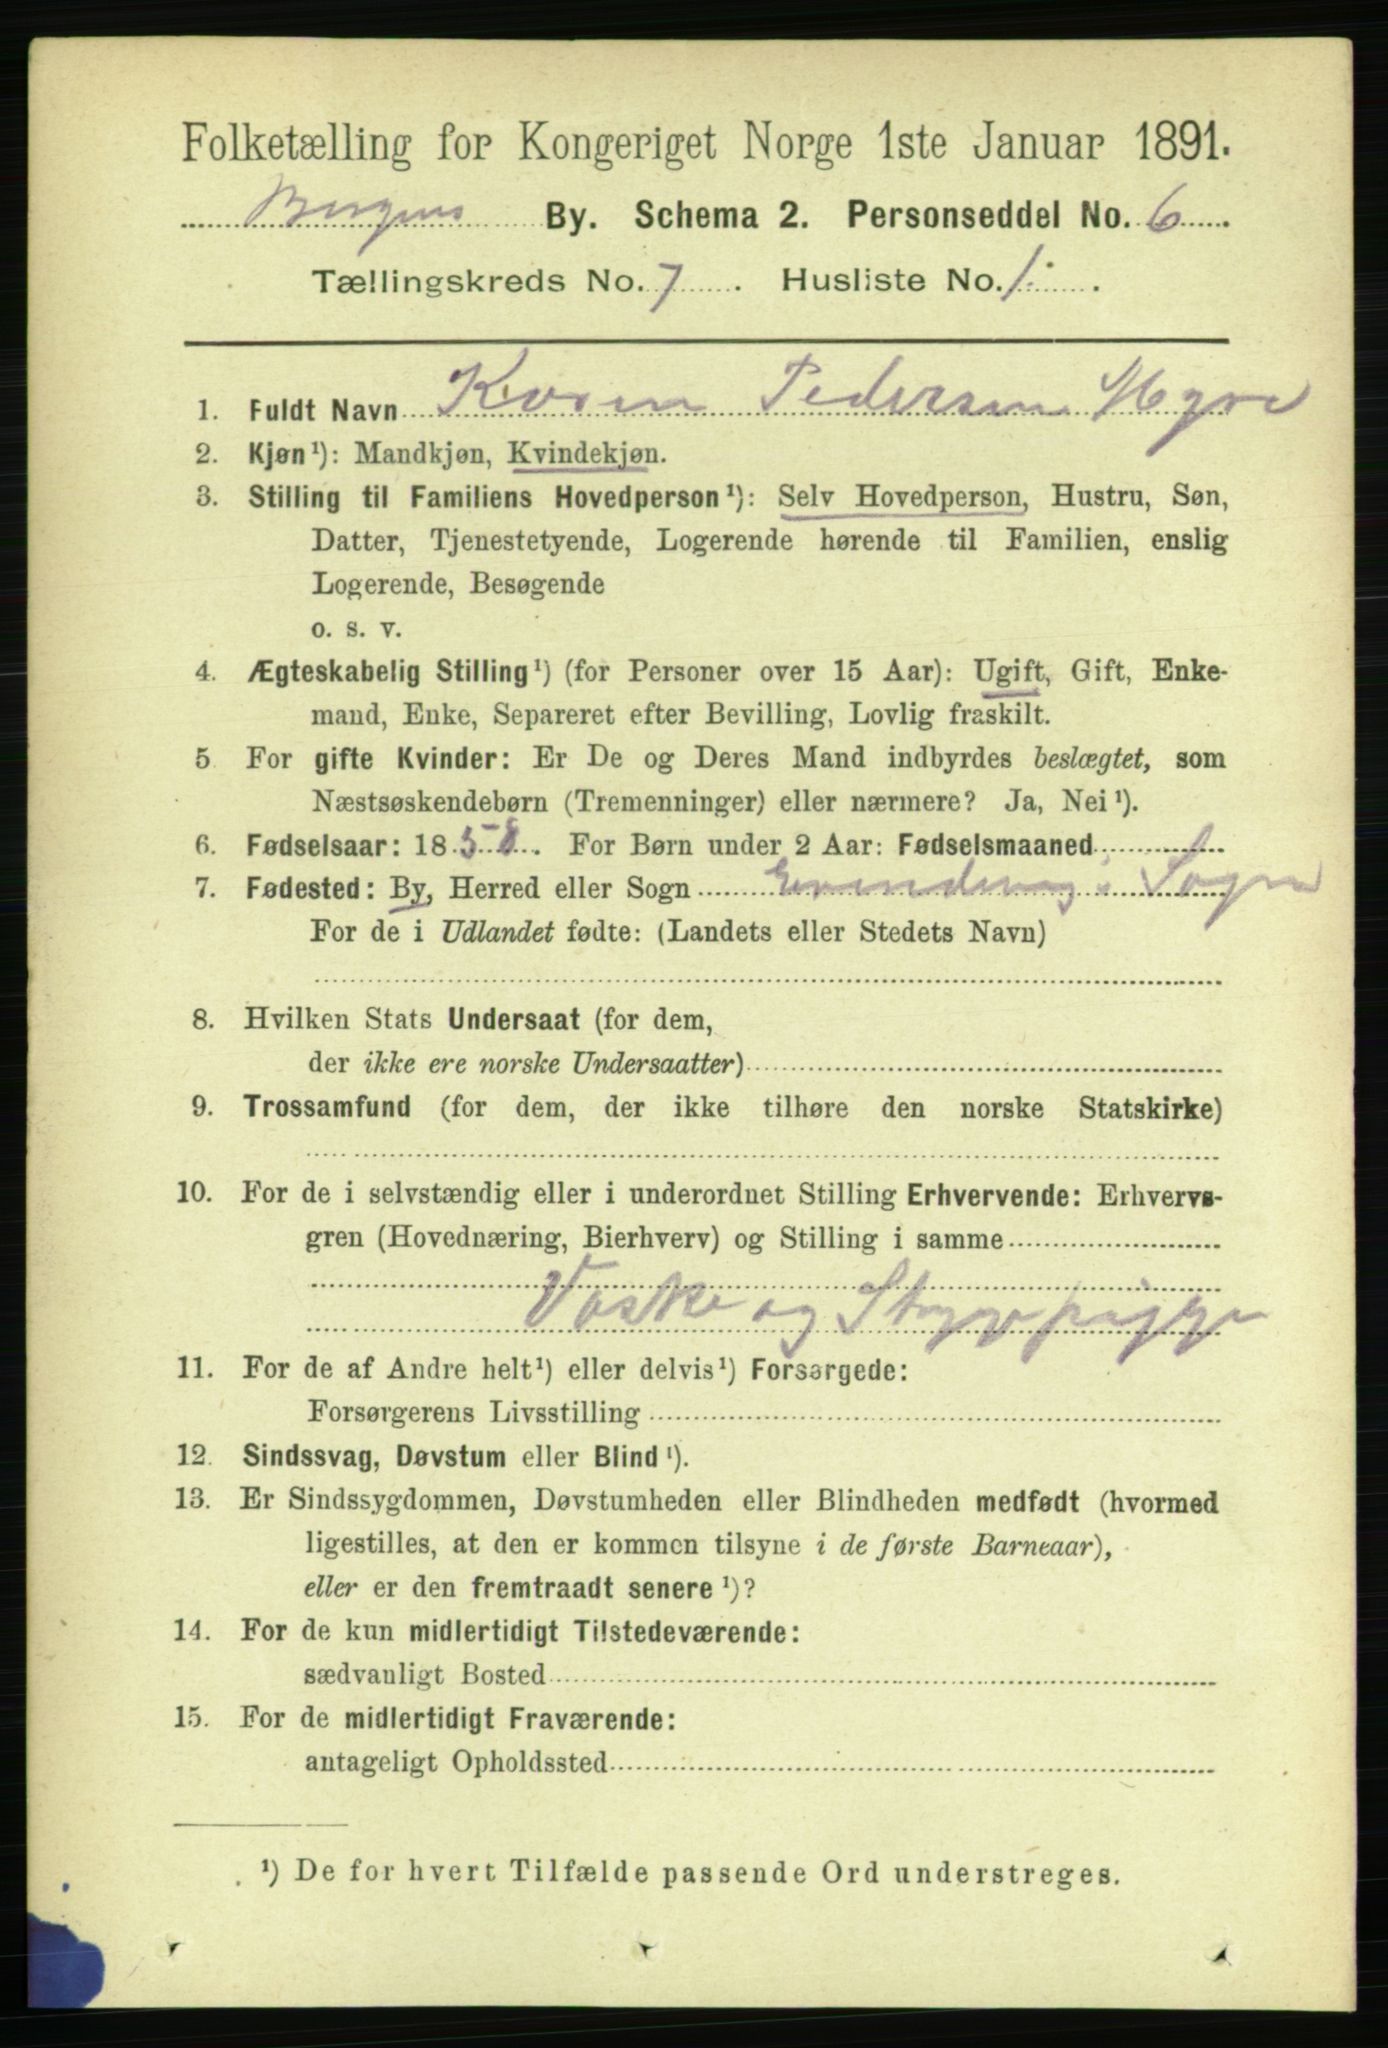 Folketælling for Kongeriget Norge 1ste Januar 1891.
Bergens By. Schema 2. Personseddel No. 6
Tællingskreds No. 7. Husliste No. 1.
1. Fuldt Navn Karen Pedersen Myre
2. Kjøn¹): Mandkjøn, Kvindekjøn.
3. Stilling til Familiens Hovedperson¹): Selv Hovedperson, Hustru, Søn,
Datter, Tjenestetyende, Logerende hørende til Familien, enslig
Logerende, Besøgende
o. s. v.
4. Ægteskabelig Stilling¹) (for Personer over 15 Aar): Ugift, Gift, Enke-
mand, Enke, Separeret efter Bevilling, Lovlig fraskilt.
5 For gifte Kvinder: Er De og Deres Mand indbyrdes beslægtet, som
Næstsøskendebørn (Tremenninger) eller nærmere? Ja, Nei¹).
6. Fødselsaar: 1858. For Børn under 2 Aar: Fødselsmaaned
7. Fødested: By, Herred eller Sogn Evindvig i Sogn
For de i Udlandet fødte: (Landets eller Stedets Navn)
8. Hvilken Stats Undersaat (for dem,
der ikke ere norske Undersaatter)
9. Trossamfund (for dem, der ikke tilhøre den norske Statskirke)
10. For de i selvstændig eller i underordnet Stilling Erhvervende: Erhvervs-
gren (Hovednæring, Bierhverv) og Stilling i samme
Vaske og
11. For de af Andre helt¹) eller delvis¹) Forsørgede:
Forsørgerens Livsstilling
12. Sindssvag, Døvstum eller Blind¹).
13. Er Sindssygdommen, Døvstumheden eller Blindheden medfødt (hvormed
ligestilles, at den er kommen tilsyne i de første Barneaar),
eller er den fremtraadt senere¹)?
14. For de kun midlertidigt Tilstedeværende:
sædvanligt Bosted
15. For de midlertidigt Fraværende:
antageligt Opholdssted
¹) De for hvert Tilfælde passende Ord understreges.